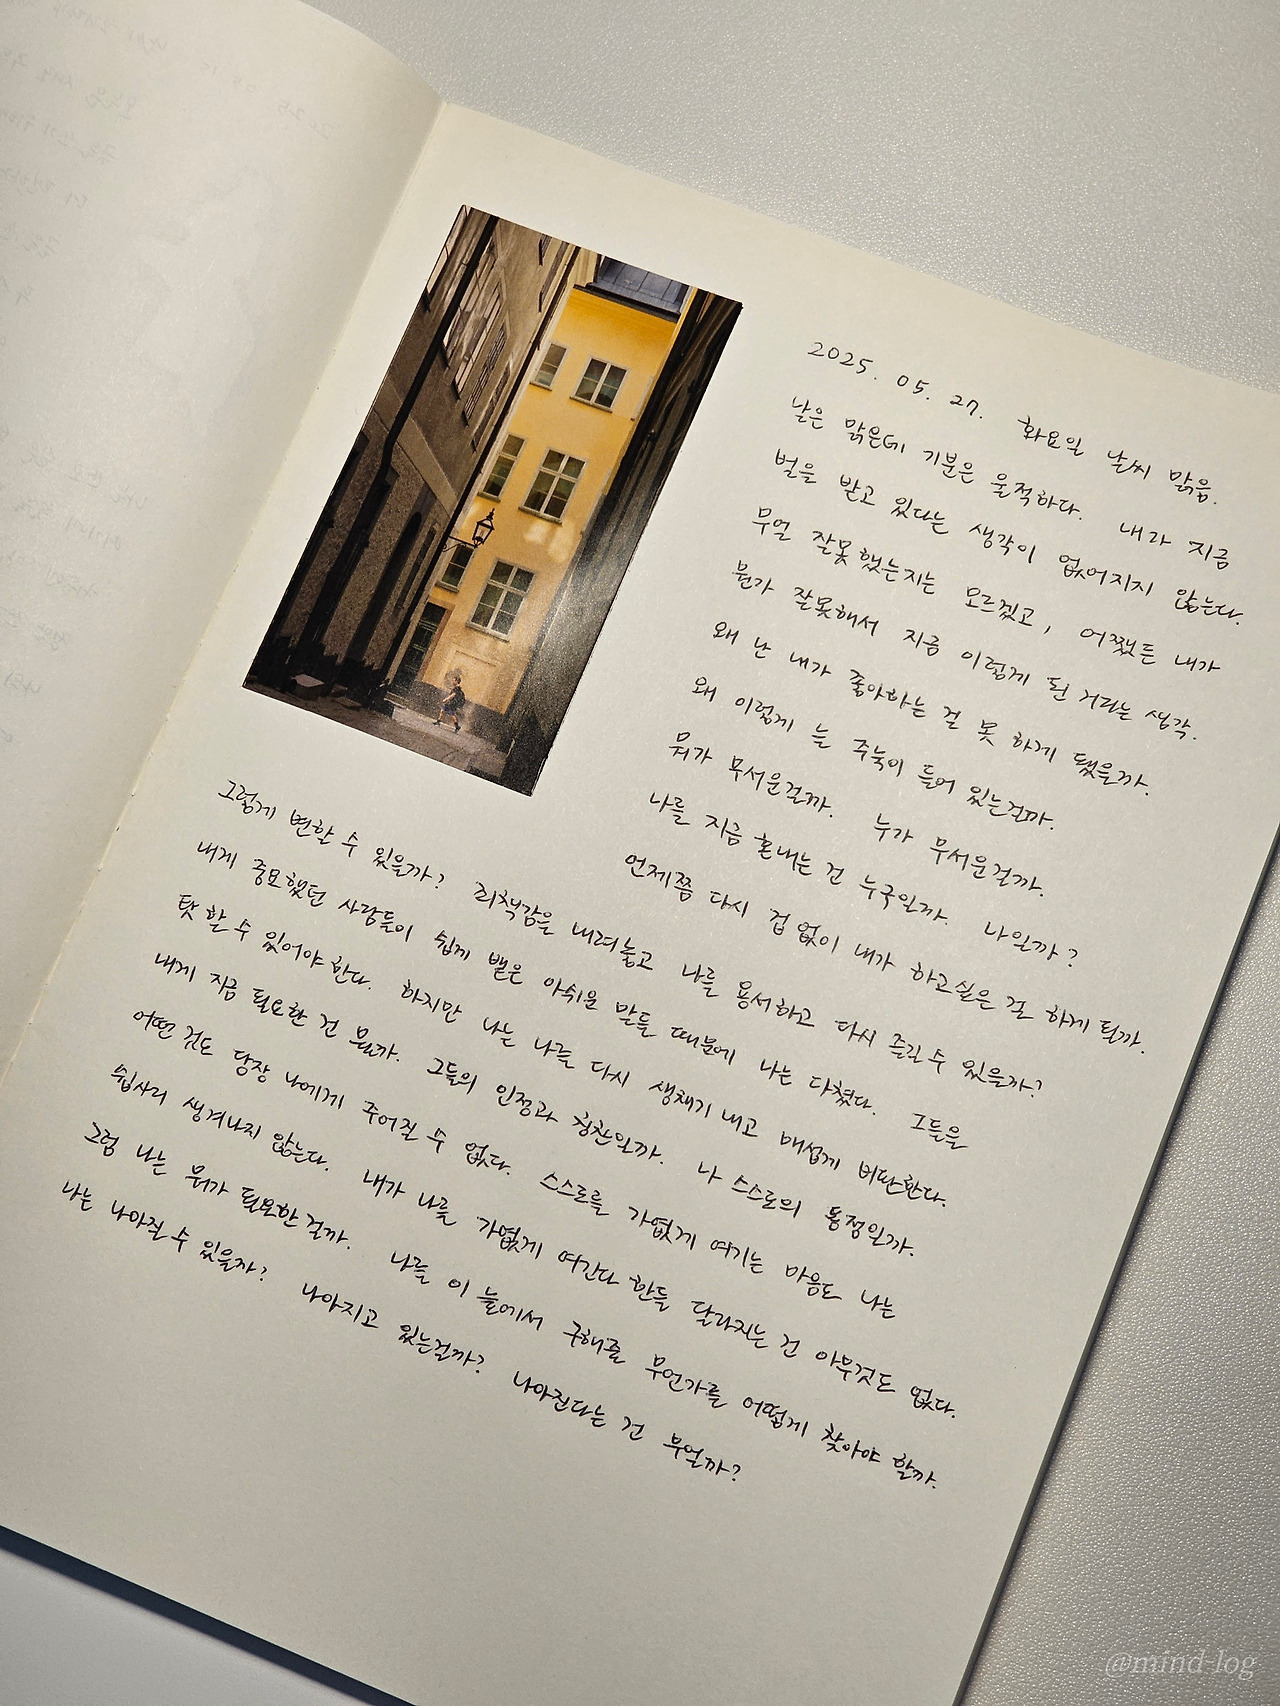 2025. 05. 27. 화요일 날씨 맑음.
날은 맑은데 기분은 울적하다. 내가 지금
벌을 받고 있다는 생각이 없어지지 않는다.
무얼 잘못했는지는 모르겠고, 어쨌든 내가
뭔가 잘못해서 지금 이렇게 된 거라는 생각.
왜 난 내가 좋아하는 걸 못 하게 됐을까.
왜 이렇게 늘 주눅이 들어 있는걸까.
뭐가 무서운걸까. 누가 무서운걸까.
나를 지금 혼내는 건 누구일까. 나일까?
언제쯤 다시 겁 없이 내가 하고싶은 걸 하게 될까.
그렇게 변할 수 있을까? 죄책감을 내려놓고 나를 용서하고 다시 즐길 수 있을까?
내게 중요했던 사람들이 쉽게 뱉은 아쉬운 말들 때문에 나는 다쳤다. 그들을
탓 할 수 있어야 한다. 하지만 나는 나를 다시 생채기 내고 매섭게 비판한다.
내게 지금 필요한 건 뭘까. 그들의 인정과 칭찬일까. 나 스스로의 동정일까.
어떤 것도 당장 나에게 주어질 수 없다. 스스로를 가엾게 여기는 마음도 나는
쉽사리 생겨나지 않는다. 내가 나를 가엾게 여긴다 한들 달라지는 건 아무것도 없다.
그럼 나는 뭐가 필요한걸까. 나를 이 늪에서 구해줄 무언가를 어떻게 찾아야 할까.
나는 나아질 수 있을까? 나아지고 있는걸까? 나아진다는 건 무얼까?
@mind-log